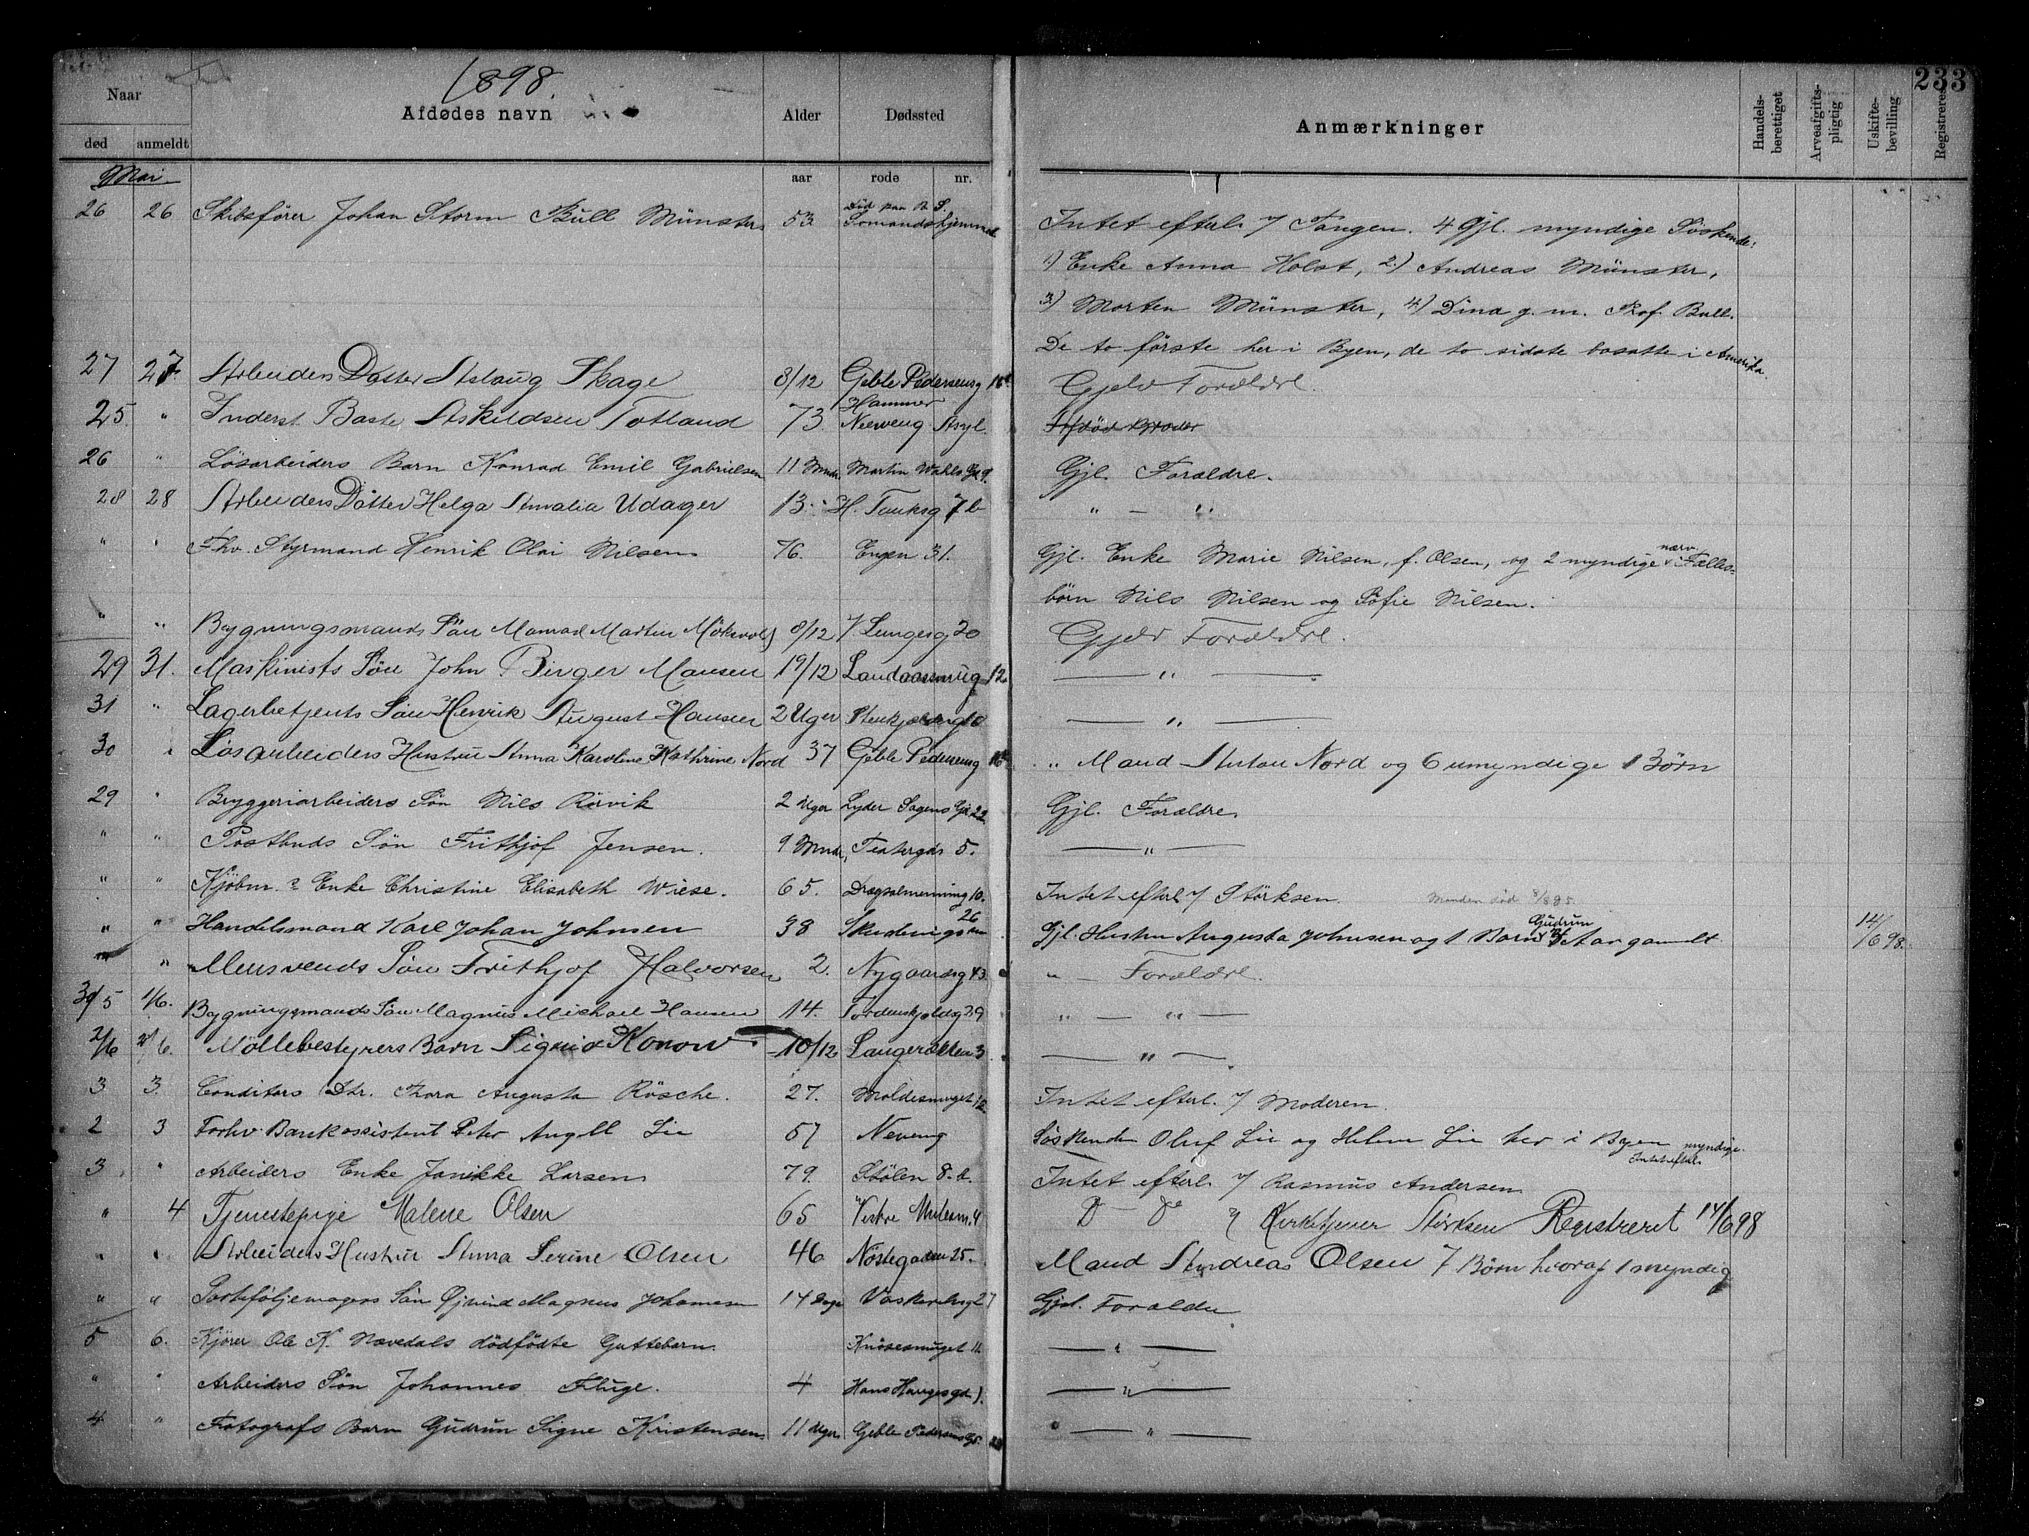 233
1898.
Naar
Afdødes navn
Alder
Dødssted
Anmærkninger
Handels-berettiget
Arveafgifts-pligtig
Uskifte-bevilling
Registreres
død anmeldt
aar rode nr.
Mai
26 26 Skibsfører Johan Storm Bull Münster 53 Død paa B. S. Sømandshjemmet Intet efterl. / Tangen. 4 Gjl. myndige Søskende:
1) Enke Anna Holst, 2) Andreas Münster,
3) Morten Münster, 4) Dina g. m. Prof. Bull.
De to første her i Byen, de to sidste bosatte i Amerika.
27 27 Arbeiders Datter Aslaug Skage 8/12 Geble Pedersensg Gjelv Forældre.
25 " Inderst Baste Askildsen Totland 73 Hammer Neeveng Asyl.
26 " Løsarbeiders Barn Konrad Emil Gabrielsen 11 Mndr. Martin Wahls Gd 9. Gjl. Forældre.
28 28 Arbeiders Datter Helga Amalia Udager 13 H. Tanksg 7 b " — "
" " Fhv. Styrmand Henrik Olai Nilsen 76. Engen 31. Gjl. Enke Marie Nilsen, f. Olsen, og 2 myndige nærv. Fælles-
børn Nils Nilsen og Sofie Nilsen.
" " Bygningsmands Søn Monrad Martin 8/12 / Lungesg 20 Gjelv Forældre.
29 31. Maskinists Søn John Birger Mansen 19/12 Landaasveien 12 — " —
31 " Lagerbetjents Søn Henrik August Hansen 2 Uger — " —
30 " Løsarbeiders Hustru Anna Karoline Kathrine Nord 37 Geble Pedersensg " Mand Anton Nord og 6 umyndige Børn
29 " Bryggeriarbeiders Søn Nils Rørvik 2 Uger Lyder Sagens Gd 22. Gjl. Forældre.
" " Postbuds Søn Frithjof Jensen. 9 Mndr. Teatergd 5. — " —
" " Kjøbm. Enke Christine Elisabeth Wiese. 65. Dragsalmenning 10. Intet efterl. / Størksen. Manden død 8/885.
" " Handelsmand Karl Johan Johnsen 38 Skudevigs 26 Gjl. Hustru Augusta Johnsen og 1 Barn Gudrun Aar gamelt 14/6 98.
" " Søn Frithjof Halvorsen 2. Nygaardsg 43. " — Forældre.
30/5 1/6. Bygningsmands Søn Magnus Michael Hansen 14. Tordenskjoldsg 39 " — " —
2/6 2/6. Møllebestyrers Barn Signid Konow. 10/12 Langerækken 3 — " —
3 3. Conditors Dtr. Thora Augusta Rösche. 27. Moldesmuget 12. Intet efterl. / Moderen.
2 3 Forhv. Bankassistent Peter Angell Lie 57 Neveng Søskende Oluf Lie og Helen Lie her i Byen myndige. Intet efterl.
3 " Arbeiders Enke Janikke Larsen 79. Stølen 8. b. Intet efterl. / Rasmus Andersen
" 4 Tjenestepige Malene Olsen 65 Vestre 4 D — D / Kirketjener Størksen Registreret 14/6 98
" " Arbeiders Hustru Anna Serine Olsen 46 Nøstegaden 25. Mand Andreas Olsen 7 Børn hvoraf 1 myndig
" " Porteføljemagers Søn Øjvind Magnus Johannesen 14 Dage Vaskerelvsg 27 Gjl. Forældre
5 6. Kjører Ole K. Nævedals dødfødte Guttebarn Knøsesmuget 11. — " —
" " Arbeiders Søn Johannes Fluge. 4 Hans Haugesgd 1. — " —
4 " Fotografs Barn Gudrun Signe Kristensen. 11 Uger Geble Pedersens G. — " —